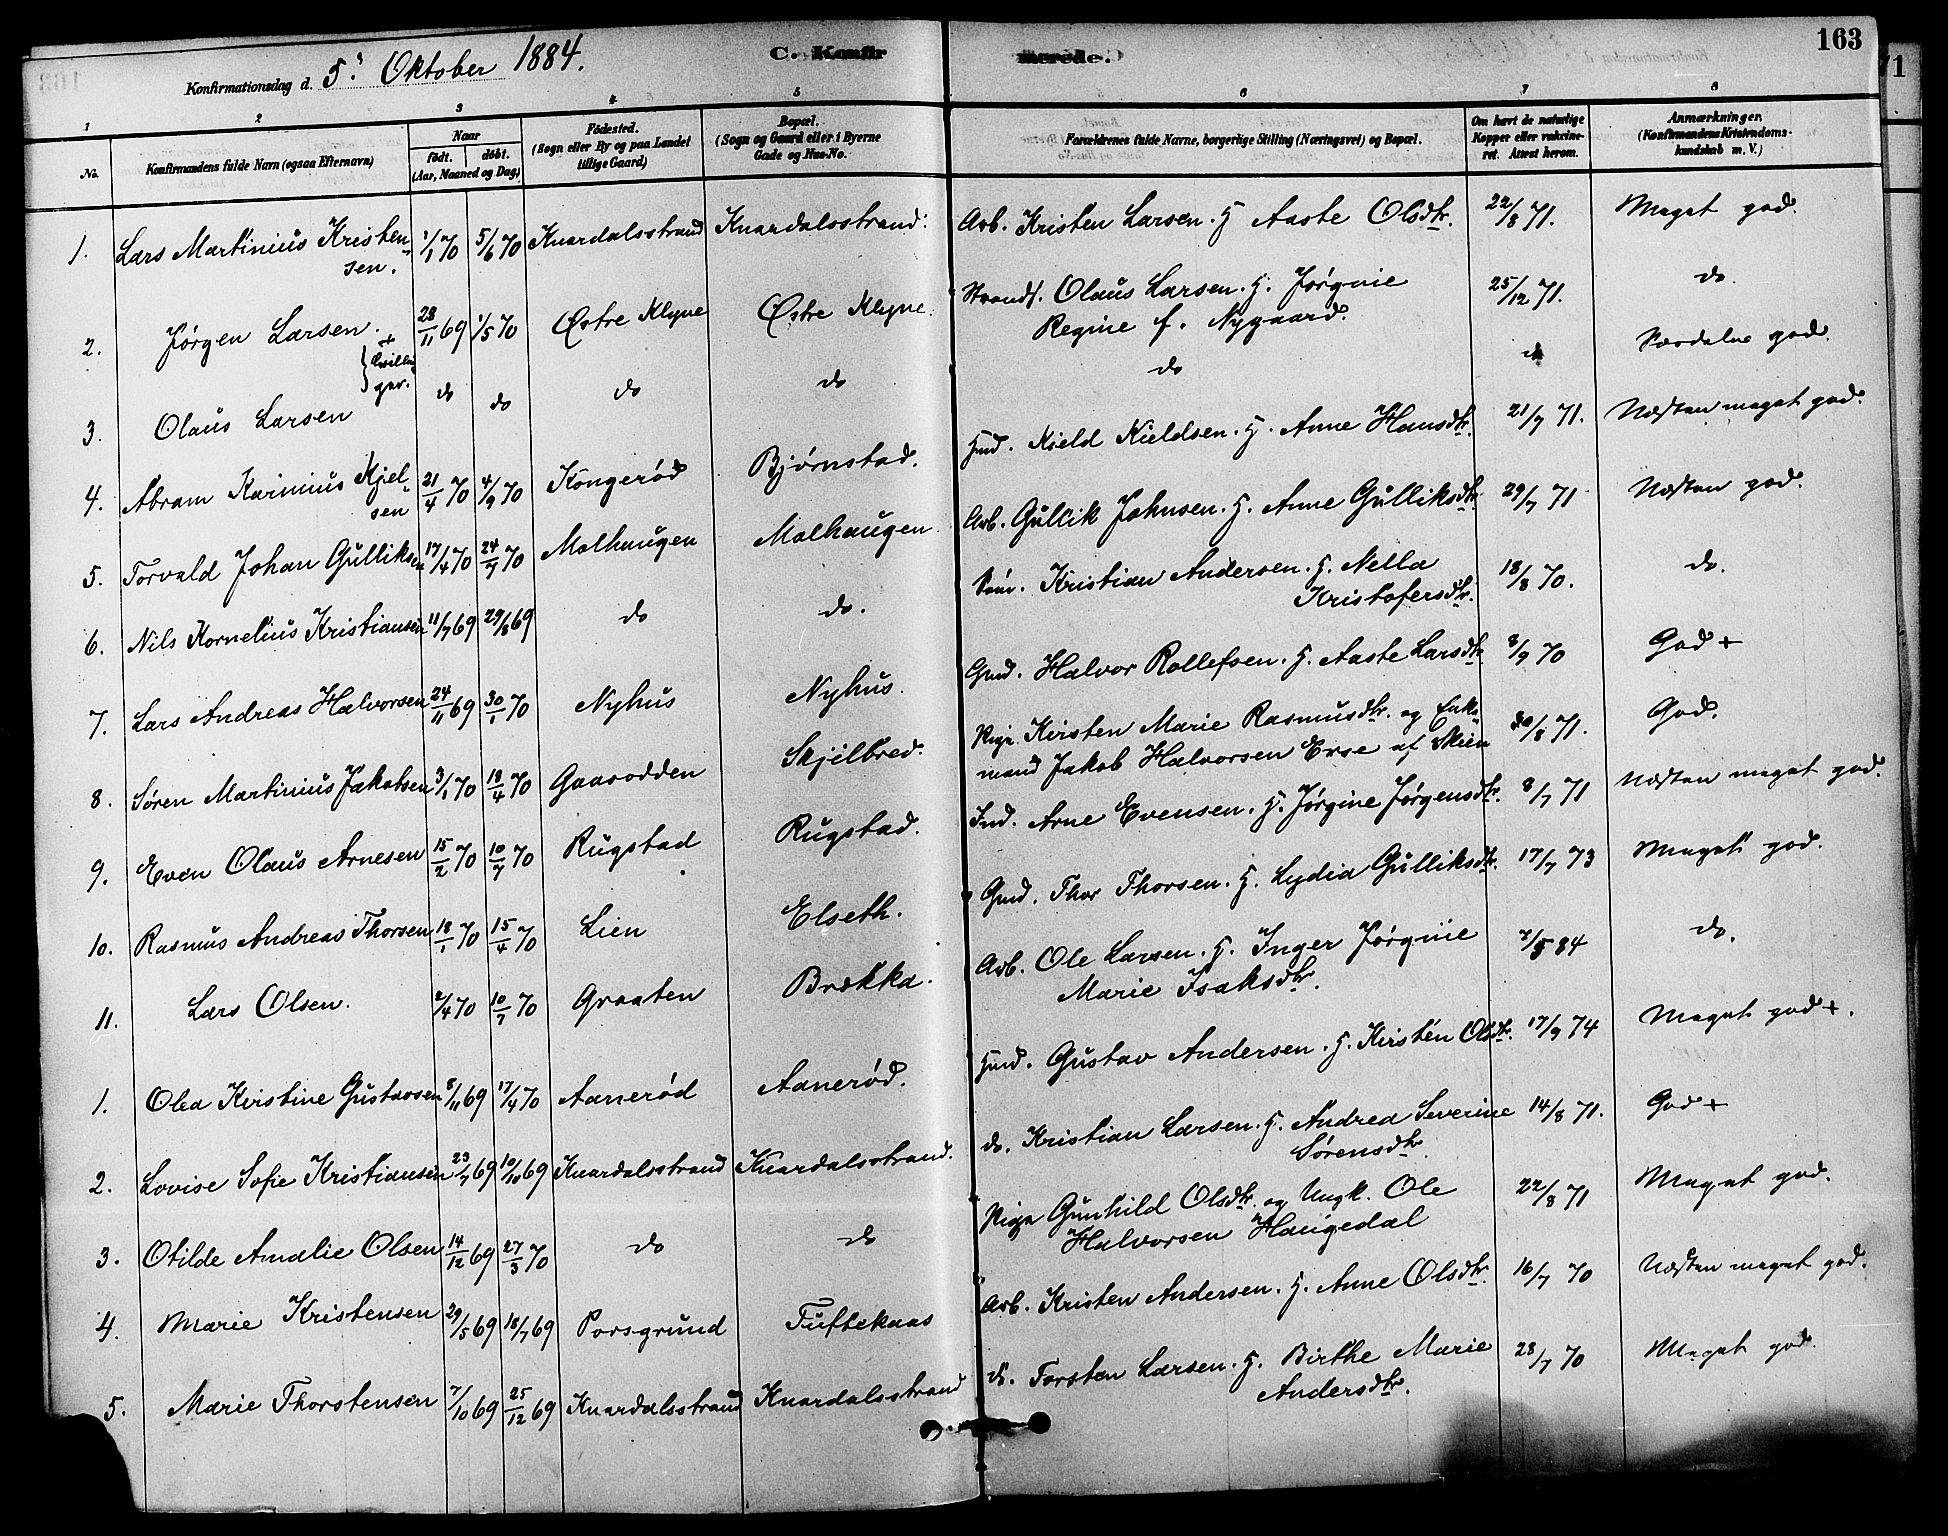 163
71
C. Konfirmerede.
Konfirmationsdag d. 5. Oktober 1884.
1 2 3 4 5 6 7 8
No. Konfirmandens fulde Navn (ogsaa Efternavn) Naar født. døbt. (Aar, Maaned og Dag) Fødested. (Sogn eller By og paa Landet tillige Gaard) Bopæl. (Sogn og Gaard eller i Byerne Gade og Hus-No. Forældrenes fulde Navne, borgerlige Stilling (Næringsvei) og Bopæl. Om havt de naturlige Kopper eller vakcineret. Attest herom. Anmærkninger. (Konfirmandens Kristendomskundskab m. V.)
1. Lars Martinius Kristensen. 1/1 70 5/6 70 Knardalsstrand Knardalsstrand. Arb. Kristen Larsen. H Aaste Olsdtr. 22/8 71. Meget god.
2. Jørgen Larsen. + 28/11 69 1/5 70 Østre Klyve Østre Klyve. Strands. Olaus Larsen. H. Jørgine Regine f. Nygaard. 25/12 71. do
} Tvillinger.
3. Olaus Larsen do do do do do do Særdeles god.
4. Abram Karinius Kjelsen 21/4 70 4/9 70 Kongerød Bjørnstad. Hmd. Kield Kieldsen. H. Anne Hansdtr. 21/7 71. Næsten meget god.
5. Torvald Johan Gulliksen 17/4 70 24/7 70 Malhaugen Malhaugen Arb. Gullik Johnsen. H. Anne Gulliksdtr. 29/7 71 Næsten god.
6. Nils Kornelius Kristiansen 11/7 69 29/8 69 do do. Søm. Kristian Andersen. H. Nella Kristofersdtr. 18/8 70. do.
7. Lars Andreas Halvorsen 24/11 69 30/1 70 Nyhus Nyhus. Gmd. Halvor Rollefsen. H. Aaste Larsdtr 8/9 70 God +
8. Søren Martinius Jakobsen 3/1 70 18/4 70 Gaasodden Skjilbred. Pige Kirsten Marie Rasmusdtr. og Enkemand Jakob Halvorsen Erse af Skien 30/8 71. God.
9. Even Olaus Arnesen 15/2 70 10/7 70 Rugstad Rugstad. Ind. Arne Evensen. H. Jørgine Jørgensdtr. 8/7 71 Næsten meget god.
10. Rasmus Andreas Thorsen 18/1 70 15/4 70 Lien Elseth. Gmd. Thor Thorsen. H. Lydia Gulliksdtr. 17/7 73 Meget god.
11. Lars Olsen. 2/4 70 10/7 70 Graaten Brække. Arb. Ole Larsen. H. Inger Jørgine Marie Isaksdtr. 7/5 84 do.
1. Olea Kirstine Gustavsen 8/11 69 17/4 70 Aanerød Aanerød. Hmd. Gustav Andersen. H. Kirsten Olsdtr. 17/9 74 Meget god +.
2. Lovise Sofie Kristiansen 23/7 69 10/10 69 Knardalsstrand Knardalsstrand. do. Kristian Larsen. H. Andrea Severine Sørensdtr. 14/8 71. God +
3. Otilde Amalie Olsen 14/12 69 27/3 70 do do Pige Gunhild Olsdtr. og Ungk. Ole Halvorsen Haugedal 22/8 71 Meget god.
4. Marie Kristensen 29/5 69 18/7 69 Porsgrund Tuftekaas Arb. Kristen Andersen. H. Anne Olsdtr. 16/7 70 Næsten meget god.
5. Marie Thorstensen 7/10 69 25/12 69 Knardalsstrand Knardalsstrand do. Torsten Larsen. H. Birthe Marie Andersdtr. 28/7 70 Meget god.